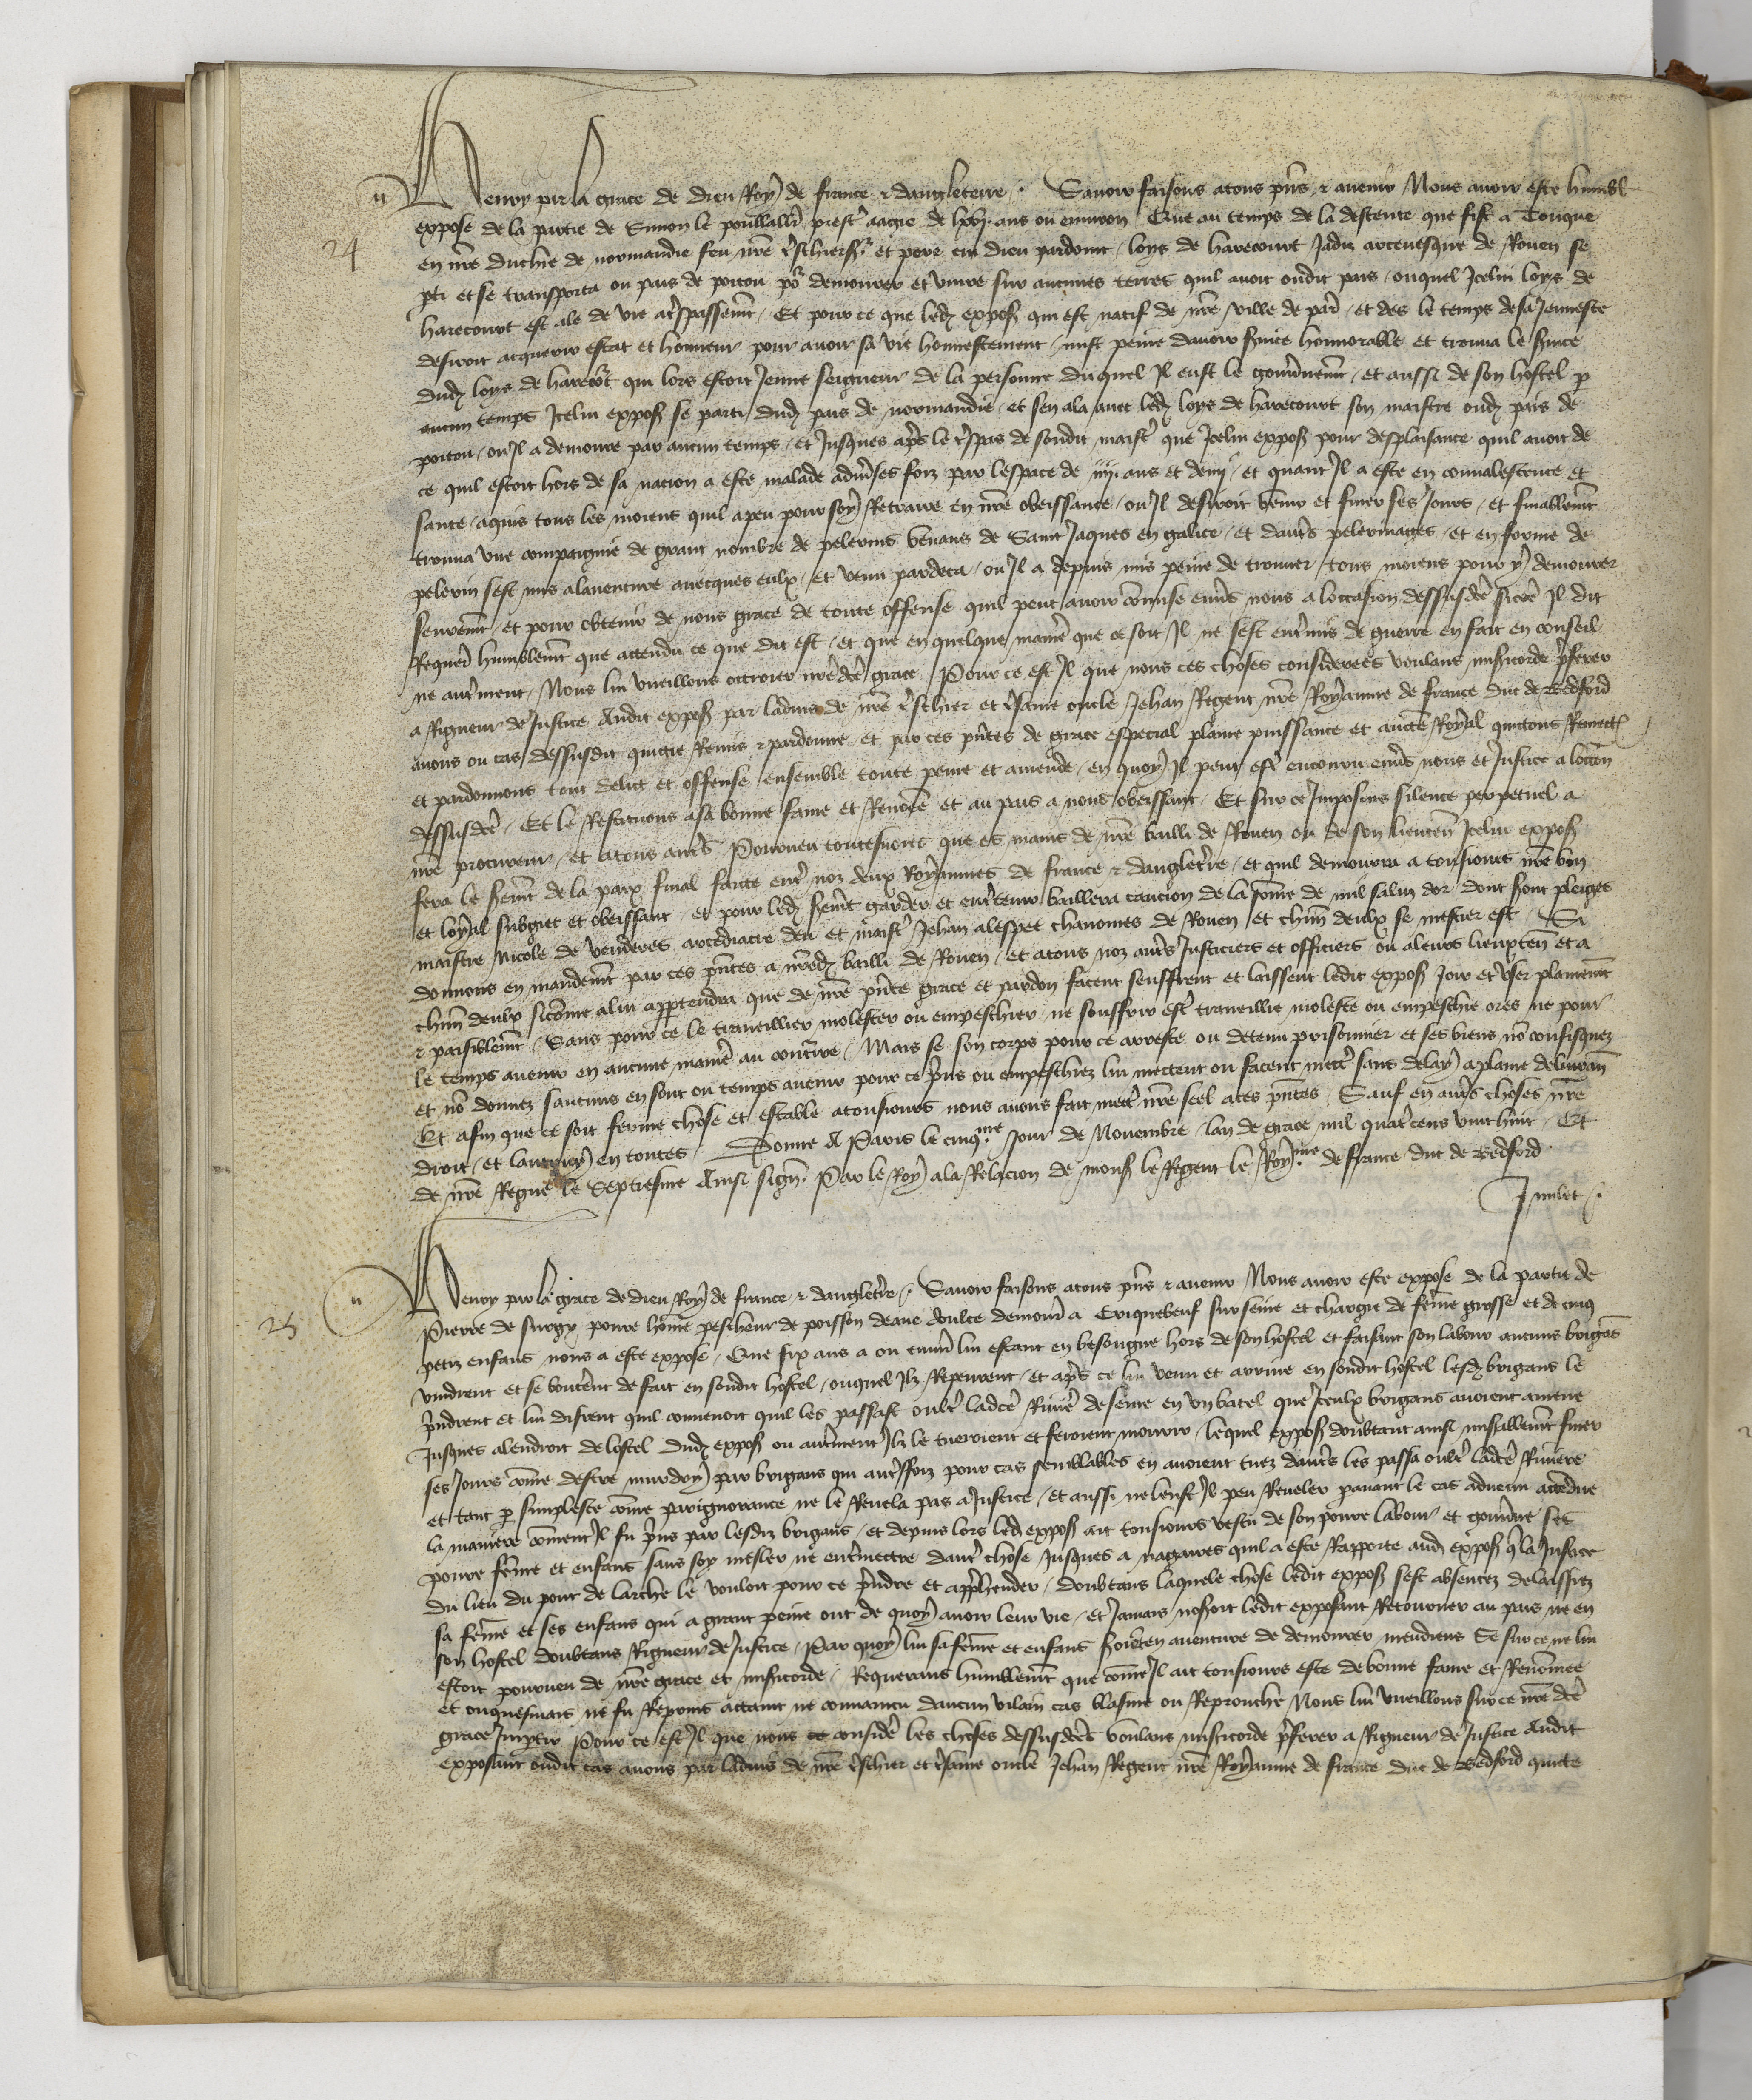 n
24
Henry par la grace de dieu Roy de france & dangleterre. Sauoir faisons a tous pns & auenir Nous auoir este humbl
expose de la partie de Simon le prest aagie de ans ou enuiron Que au temps de la descente que fist a Touque
en nre duchie de normandie feu nre tschier sr et pere cui dieu pardoint / loys de harecourt Jadiz arceuesque de Rouen se
pti et se transporta ou pais de poitou por demourer et viure sur aucunes terres quil auoit oudit pais / ouquel Icelui loys de
harecourt est ale de vie a tspassemt / Et pour ce que led expos qui est natif de nre ville de par / et des le temps de sa Jeunesse
desiroit acquerir estat et honneur pour auoir sa vie honnestement / mist peine dauoir suice honnorable et trouua le suice
dud loys de harecort qui lors estoit Jeune seigneur de la personne duquel Il eust le gouunemt / et aussi de son hostel p
aucun temps Icelui expos se parti dud pais de normandie / et sen ala auec led loys de harecourt son maistre oud pais de
poitou / ou Il a demoure par aucun temps / et Jusques aps le tspas de sondit maist que Icelui expos pour desplaisance quil auoit de
ce quil estoit hors de sa nacion a este malade aduses foiz par lespace de iiii ans et demi / et quant Il a este en conualescence et
sante / aquis tous les moiens quil a peu pour soy Retraire en nre obeissance / ou Il desiroit venir et finer ses Jours / et finablemt
trouua vne compaignie de grant nombre de pelerins venans de Saint Jaques en galice / et dauts pelerinages / et en forme de
pelerin sest mis alauenture auecques eulx / et venu pardeca / ou Il a depuis mis peine de trouuer tous moiens pour y demourer
seuremt / et pour obtenir de nous grace de toute offense quil peut auoir comise enuers nous a loccasion dessusdce sicoe Il dit
Requerat humblemt que attendu ce que dit est / et que en quelque manie que ce soit Il ne sest entmis de guerre en fait en conseil
ne autment / Nous lui vueillons octroier nre dce grace / Pour ce est Il que nous ces choses considerees voulans misicorde pferer
a Rigueur de Justice Audit expos par laduis de nre tschier et tsame oncle Jehan Regent nre Royaume de france duc de Bedford
auons ou cas dessusdit quictie Remis & pardonne / et par ces pntes de grace especial plaine puissance et aucte Royal quictons Remect
et pardonnons tout delict et offense ensemble toute peine et amende / en quoy Il peut est encouru enuers nous et Justice a locon
dessusdce / Et le Restituons a sa bonne fame et Renomee et au pais a nous obeissant / Et sur ce Imposons silence perpetuel a
nre procureur / et a tous auts Pourueu toutesuoies que es mains de nre bailli de Rouen ou de son lieuten Icelui expos
fera le semt de la paix final faicte ent noz deux Royaumes de france & dangletere / et quil demourra a tousiours nre bon
et loyal subgiet et obeissant / et pour led semt garder et entenir baillera caucion de la some de mil saluz dor dont sont pleiges
maistre Nicole de venderes arcediacre deu et maist Jehan alespee chanoines de Rouen et chun deulx se mestier est / Si
donnons en mandemt par ces pntes a nred bailli de Rouen / et a tous noz auts Justiciers et officiers ou a leurs lieuxten et a
chun deulx sicome a lui appartendra que de nre pnte grace et pardon facent seuffrent et laissent ledit expos Joir et vser plainemt
& paisiblemt / Sans pour ce le trauueillier molester ou empeschier / ne souffrir est traueillie moleste ou empeschie ores ne pour
le temps auenir en aucune manie au contraire / Mais se son corps pour ce arreste ou detenu prisonnier et ses biens no confisquez
et no donnez saucuns en sont ou temps auenir pour ce pns ou empeschiez lui mettent ou facent mett sans delay a plaine deliuran
Et afin que ce soit ferme chose et estable a tousiours nous auons fait mett nre seel a ces pntes / Sauf en auts choses nre
droit / et lautruy en toutes Donne A Paris le cinqme Jour de Nouembre / lan de grace mil quatcens vint huit / Et
de nre Regne le Septiesme Ainsi sign. Par le Roy a la Relacion de mons le Regent le Royme de france duc de Bedford

n
25
Henry par la grace de dieu Roy de france & dangletere. Sauoir faisons a tous pns & auenir Nous auoir este expose de la partie de
Pierre de surgy poure home pescheur de poisson deaue doulce demour a Criquebeuf sur seine et chargie de feme grosse et de cinq
petiz enfans nous a este expose / Que six ans a ou enuir lui estant en besongne hors de son hostel et faisant son labour aucuns brigas
vindrent et se bouterent de fait en sondit hostel / ouquel Ilz Repeurent / et aps ce lui venu et arriue en sondit hostel lesd brigans le
pndrent et lui disrent quil conuenoit quil les passast oult ladce Riuie de seine en vn batel que Iceulx brigans auoient amene
Jusques alendroit de lostel dud expos ou autment Ilz le tueroient et feroient mourir / lequel expos doubtant ainsi misablemt finer
ses Jours come destre murdry par brigans qui autffoiz pour cas semblables en auoient tuez dauts les passa oult ladce Riuiere
et tant p simplesse come par ignorance ne le Reuela pas a Justice / et aussi ne leust Il peu Reueler parauant le cas aduenu attedue
la maniere coment Il fu pns par lesdiz brigans / et depuis lors led expos ait tousiours vescu de son poure labour et gouune ses
poure feme et enfans sans soy mesler ne entmectre daut chose Jusques a nagaires quil a este Rapporte aud expos q la Justice
du lieu du pont de larche le vouloit pour ce pndre et apphender / doubtans laquele chose ledit expos sest absentez delaissiez
sa feme et ses enfans qui a grant peine ont de quoy auoir leur vie / et Jamais noseroit ledit exposant Retourner au pais ne en
son hostel doubtans Rigueur de Justice / Par quoy lui sa feme et enfans soiet en auenture de demourer mendiens Se sur ce ne lui
estoit pourueu de nre grace et misicorde / Requerans humblemt que come Il ait tousiours este de bonne fame et Renomee
et onquesmais ne fu Reprins actaint ne conuaincu daucun vilain cas blasme ou Reprouche Nous lui vueillons sur ce nre dce
grace Impartir Pour ce est Il que nous ce conside les choses dessusdces voulans misicorde pferer a Rigueur de Justice Audit
exposant oudit cas auons par laduis de nre tschier et tsame oncle Jehan Regent nre Royaume de france duc de Bedford quicte